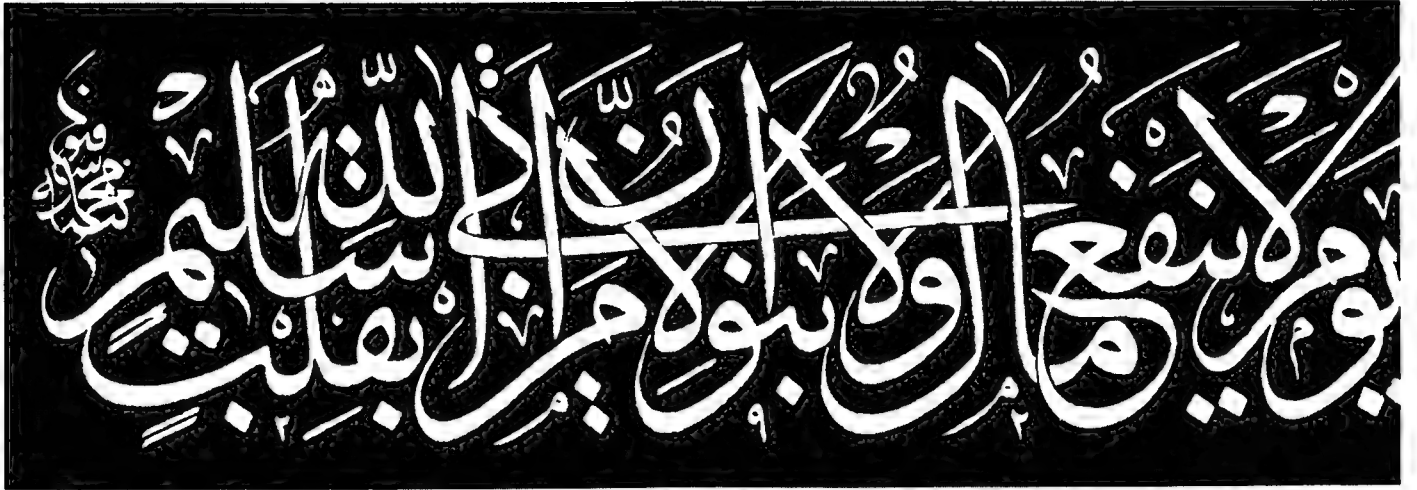 يَوْمَ لَا يَنْفَعُ مَالٌ وَلَا بَنُونَ إِلَّا مَنْ أَتَى اللّٰهَ بِقَلْبٍ سَلِيمٍ